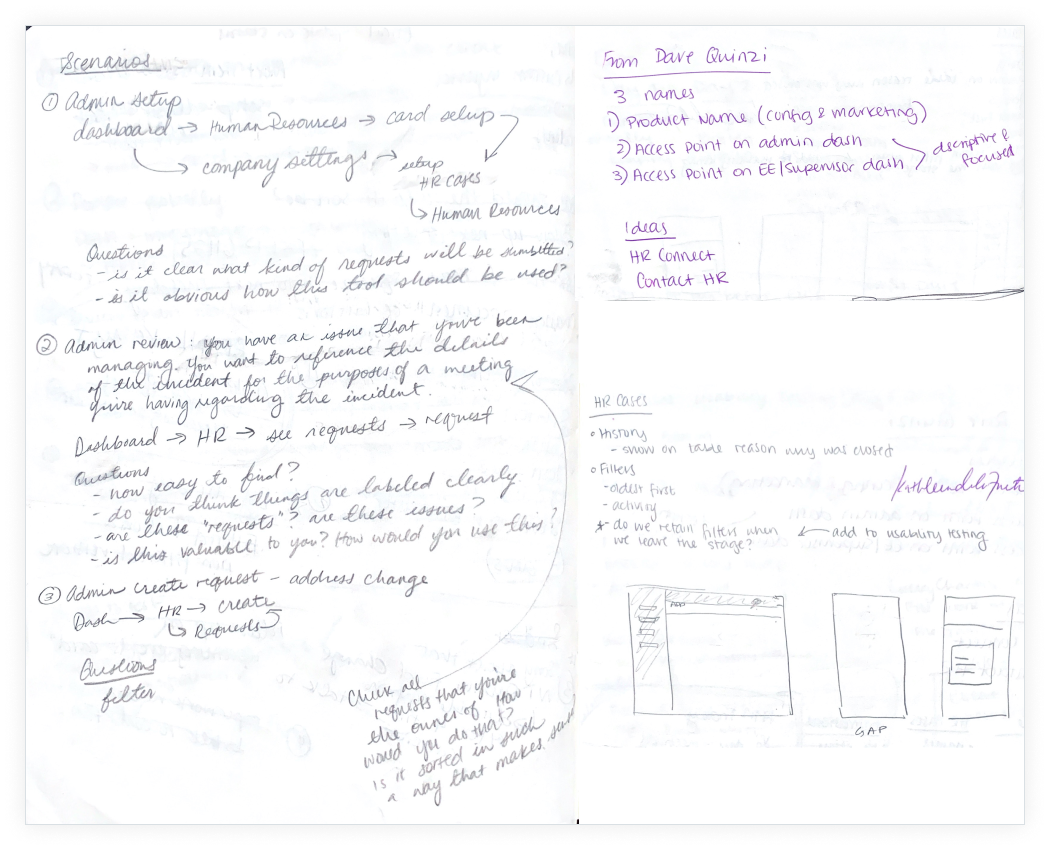 Scenarios
① Admin setup
dashboard → Human Resources → card setup
company settings → setup
HR Cases
Human Resources
Questions
- is it clear what kind of requests will be submitted?
- is it obvious how this tool should be used?
② Admin review: you have an issue that you've been
managing. You want to reference the details
of the incident for the purposes of a meeting
you're having regarding the incident.
Dashboard → HR → see requests → request
Questions
- how easy to find?
- do you think things are labeled clearly
- are these "requests"? are these issues?
- is this valuable to you? How would you use this?
③ Admin create request - address change
Dash → HR → create
Requests
Questions
filter
Check all
requests that you're
the owner of. How
would you do that?
is it sorted in such
a way that makes
From Dave Quinzi
3 names
1) Product Name (config & marketing)
2) Access Point on admin dash
3) Access Point on EE/Supervisor dash
descriptive &
focused
Ideas
HR Connect
Contact HR
HR Cases
History
- show on table reason why was closed
Filters
- oldest first
- activity
* do we retain filters when
we leave the stage?
← add to usability testing